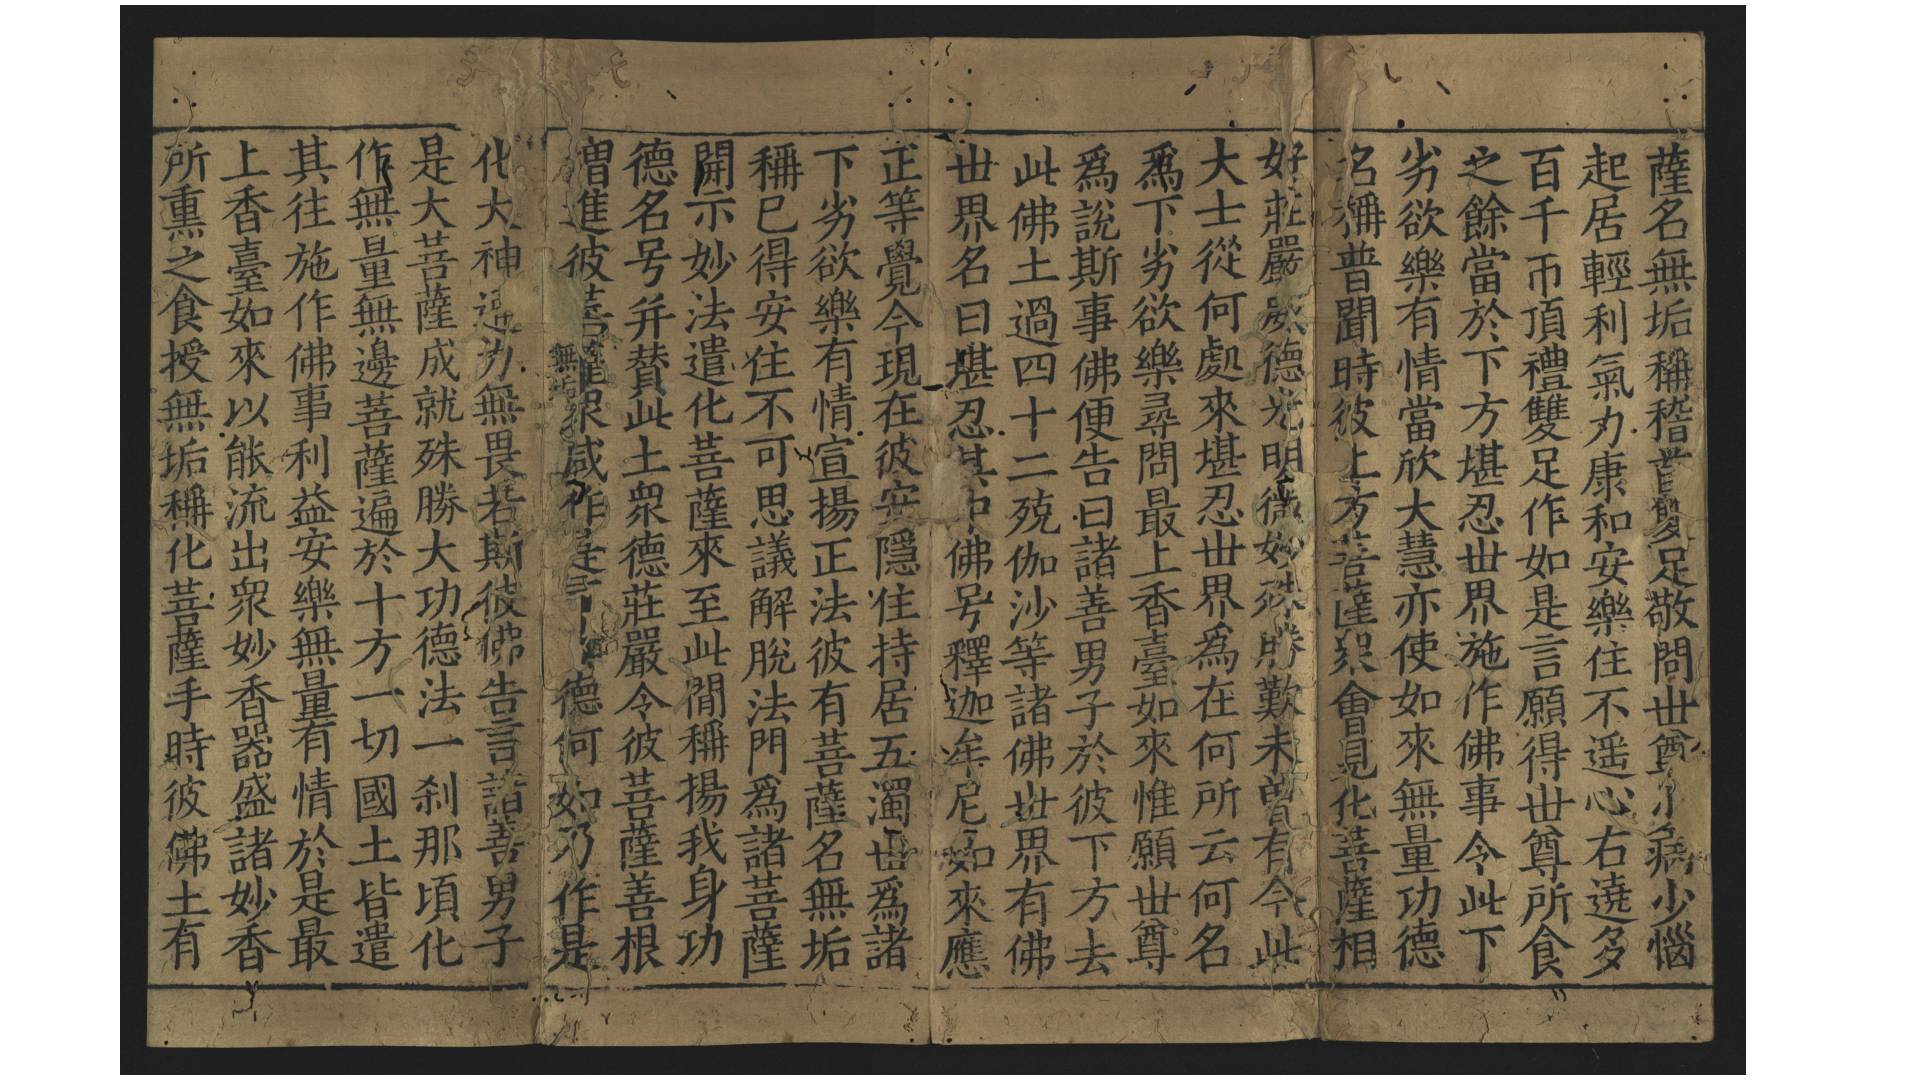 薩名無垢稱稽首雙足敬問世尊少病少惱
起居輕利氣力康和安樂住不遥心右遶多
百千帀頂禮雙足作如是言願得世尊所食
之餘當於下方堪忍世界施作佛事令此下
劣欲樂有情當欣大慧亦使如來無量功德
名稱普聞時彼上方菩薩眾會見化菩薩相
好莊嚴威德光明微妙殊勝歎未曾有今此
大士從何處來堪忍世界爲在何所云何名
爲下劣欲樂尋問最上香臺如來惟願世尊
爲說斯事佛便告曰諸善男子於彼下方去
此佛土過四十二殑伽沙等諸佛世界有佛
世界名曰堪忍其中佛号釋迦牟尼如來應
正等覺今現在彼安隱住持居五濁世爲諸
下劣欲樂有情宣揚正法彼有菩薩名無垢
稱已得安住不可思議解脫法門爲諸菩薩
開示妙法遣化菩薩來至此間稱揚我身功
德名号并賛此土眾德莊嚴令彼菩薩善根
增進彼菩薩眾咸作是言德何如乃作是
化大神通力無畏若斯彼佛告言諸善男子
是大菩薩成就殊勝大功德法一刹那頃化
作無量無邊菩薩遍於十方一切國土皆遣
其往施作佛事利益安樂無量有情於是最
上香臺如來以能流出眾妙香器盛諸妙香
所熏之食授無垢稱化菩薩手時彼佛土有